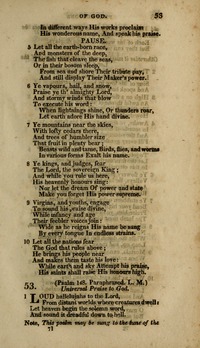 OF GOD. 55
In different ways His works proclaim
His wondrous name, And speak his praise.
PAUSE.
5 Let all the earth-born race,
And monsters of the deep,
The fish that cleave the seas,
Or in their bosom sleep,
From sea and shore Their tribute pay,
And still display Their Maker's power.
6 Ye vapours, hail, and snow,
Praise ye th' almighty Lord,
And stormy winds that blow
To execute his word:
When lightnings shine, Or thunders roar,
Let earth adore His hand divine.
7 Ye mountains near the skies,
With lofty cedars there,
And trees of humbler size
That fruit in plenty bear;
Beasts wild and tame, Birds, flies, and worms
In various forms Exalt his name.
8 Ye kings, and judges, fear
The Lord, the sovereign King;
And while you rule us here,
His heavenly honours sing:
Nor let the dream Of power and state
Make you forget His power supreme.
9 Virgins, and youths, engage
To sound his praise divine,
While infancy and age
Their feebler voices join:
Wide as he reigns His name be sung
By every tongue In endless strains.
10 Let all the nations fear
The God that rules above;
He brings his people near
And makes them taste his love:
While earth and sky Attempt his praise,
His saints shall raise His honours high.
53. (Psalm 148. Paraphrased. L. M.)
Universal Praise to God.
1 LOUD hallelujahs to the Lord,
From distant worlds where creatures dwell:
Let heaven begin the solemn word,
And sound it dreadful down to hell.
Note, This psalm may be sung to the tune of the